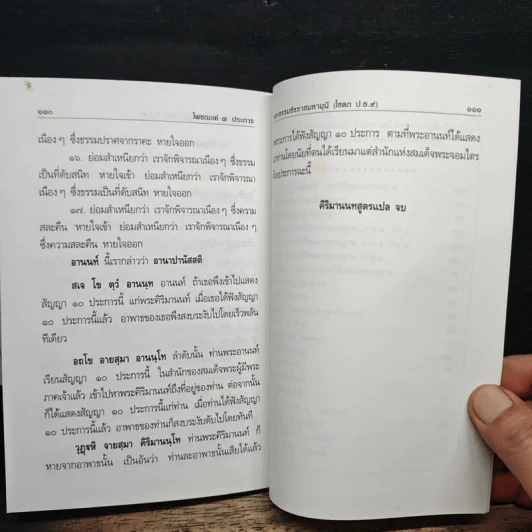 ๑๑๐
โพชฌงค์ ๗ ประการ
เนือง ๆ ซึ่งธรรมปราศจากราคะ หายใจออก
๑๖. ย่อมสำเหนียกว่า เราจักพิจารณาเนือง ๆ ซึ่งธรรม
เป็นที่ดับสนิท หายใจเข้า ย่อมสำเหนียกว่า เราจักพิจารณา
เนือง ๆ ซึ่งธรรมเป็นที่ดับสนิท หายใจออก
๑๗. ย่อมสำเหนียกว่า เราจักพิจารณาเนือง ๆ ซึ่งความ
สละคืน หายใจเข้า ย่อมสำเหนียกว่า เราจักพิจารณาเนือง ๆ
ซึ่งความสละคืน หายใจออก
อานนท์ นี้เรากล่าวว่า อานาปานัสสติ
สเจ โข ตฺวํ อานนฺท อานนท์ ถ้าเธอพึงเข้าไปแสดง
สัญญา ๑๐ ประการนี้ แก่พระคิริมานนท์ เมื่อเธอได้ฟังสัญญา
๑๐ ประการนี้แล้ว อาพาธของเธอพึงสงบระงับไปโดยเร็วพลัน
ทีเดียว
อถโข อายสฺมา อานนฺโท ลำดับนั้น ท่านพระอานนท์
เรียนสัญญา ๑๐ ประการนี้ ในสำนักของสมเด็จพระผู้มีพระ
ภาคเจ้าแล้ว เข้าไปหาพระคิริมานนท์ถึงที่อยู่ของท่าน ต่อจากนั้น
ก็ได้แสดงสัญญา ๑๐ ประการนี้แก่ท่าน เมื่อท่านได้ฟังสัญญา
๑๐ ประการนี้แล้ว อาพาธของท่านก็สงบระงับไปโดยทันที
วุฏฺฐหิ จายสฺมา คิริมานนฺโท ท่านพระคิริมานนท์ ก็
หายจากอาพาธนั้น เป็นอันว่า ท่านละอาพาธนั้นเสียได้แล้ว
พระธรรมธีรราชมหามุนี (โชดก ป.ธ.๙)
๑๑๑
เพราะการได้ฟังสัญญา ๑๐ ประการ ตามที่พระอานนท์ได้แสดง
แก่ท่านโดยนัยที่ตนได้เรียนมาแต่สำนักแห่งสมเด็จพระจอมไตร
ด้วยประการฉะนี้
คิริมานนทสูตรแปล จบ